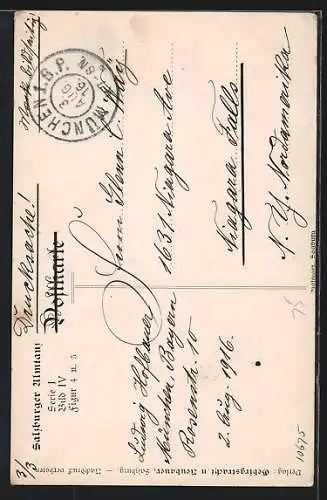 Salzburger Ulmtanz
Serie I
Bild IV
Figur 4 u. 5
3/3
Drucksache!
Postkarte
MÜNCHEN 1. B.P.
3 AUG
Ludwig Hofbauer
München Bayern
Rosenstr. 10
2. Aug. 1916.
Glenn C.
1631 Niagara Ave
Niagara Falls
N. Y. Nordamerika
Verlag: Gebirgstracht u. Neubauer, Salzburg. – Nachdruck verboten.
75
10675